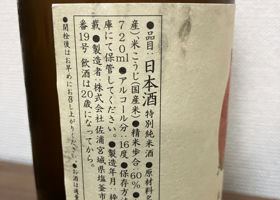 ●品目：日本酒 特別純米酒 ●原材料名
産)、米こうじ(国産米) ●精米歩合 60％ ●
720ml ●アルコール分：16度 ●保存方
庫にて保管してください。 ●製造年月 枠
載 ●製造者：株式会社 佐浦 宮城県塩釜市
番19号 飲酒は20歳になってから。
●開栓後はお早めにお召し上がりください。 ●お酒は適量